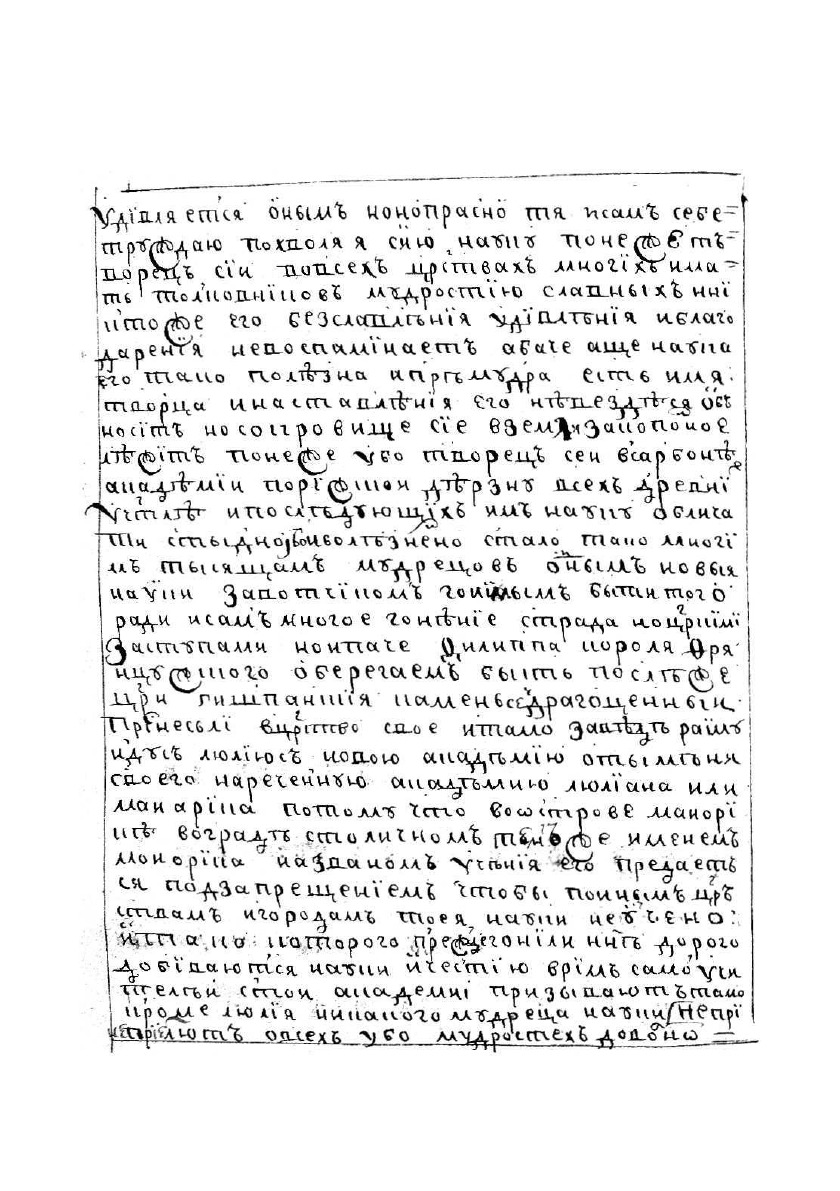 удївляется ѻнымъ конопрасно тя исамъ себе=
труждаю похволяя сїю науку понежетъ=
ворецъ сїи вовсехъ црствахъ многїхъ има=
ть толковниковъ мудростїю славныхъ ниі
ктоже его безславлѣнїя удївлѣнїя иблаго
даренїя невоспамїнаетъ абаче аще наука
его тако полѣзна ипремудра есть имя
творца инаставлѣнїя его нѣвездѣся объ
носїтъ но сокровище сїе вземли закопоное
лѣжїтъ понеже убо творецъ сеи всарбонѣ
акадѣмїи порїжскои дѣрзну всех древнї
учителѣ ипослѣдующїхъ имъ науку облича
ти стыдно иболѣзнено стало тако многї
мъ тысящамъ мудрецовъ ѻнымъ новыя
науки защотчїкомъ гонимымъ быти того
ради исамъ многое гонѣнїе страда но црскїмї
заступами ноипаче филиппа короля фря
нцужского оберегаемъ бысть послѣже
цри гишпанскїя каменье драгоценныи
прїнесьлї вцрство свое итамо завѣдъ раїму
ндусъ люліюсъ новою акадѣмїю отымѣня
своего нареченную акадѣмию люлїана или
макарїка потому что воѡстрове макорї
кѣ воградѣ столичномъ темъже именемъ
монорїка названомъ ученїя его предаеть
ся подзапрещенїемъ чтобы поинымъ црь
ствамъ игородамъ тоея науки неучено:
итако которого прежде гонїли нынѣ дорого
добїваются науки ичестїю врїмъ самоучи
тельи стои академиі призываютъ тамо
кроме люлїя инакого мудреца науки непрї
емлютъ овсехъ убо мудростехъ доволно =